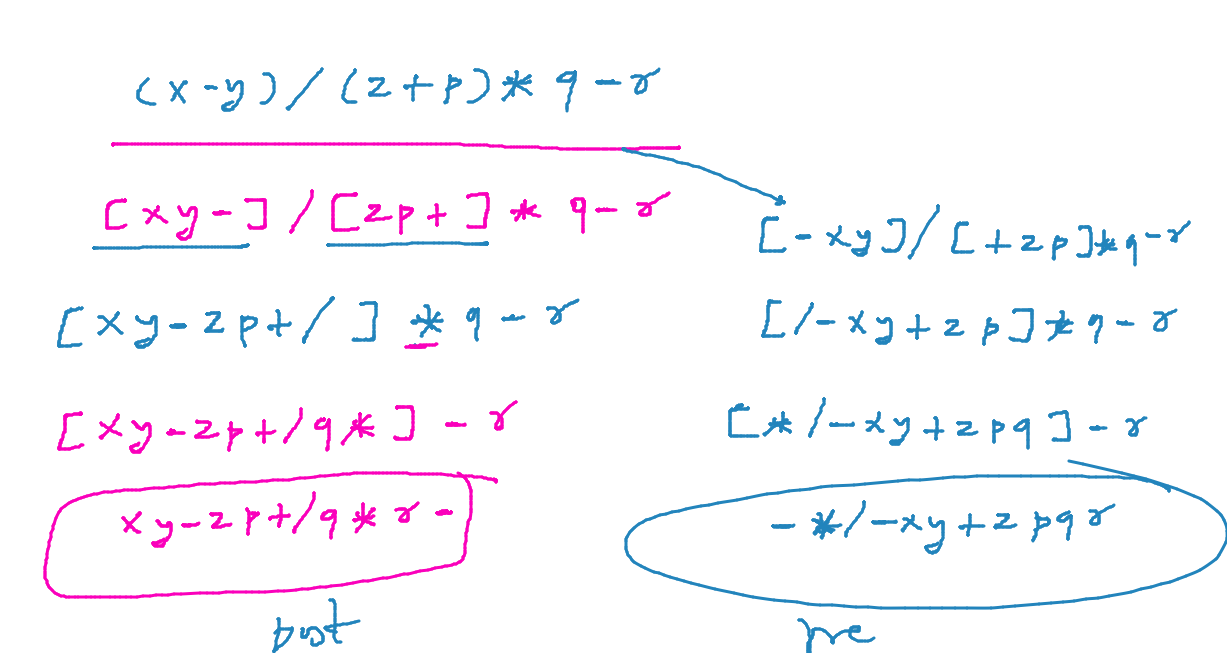 (x-y)/(z+p)* q-r
[xy-]/[zp+]* q-r
[xy-zp+/]*q-r
[xy-zp+/q*]-r
xy-zp+/q*r-
post
[-xy]/[+zp]*q-r
[/-xy+zp]*q-r
[*/-xy+zpq]-r
-*/-xy+zpqr
pre